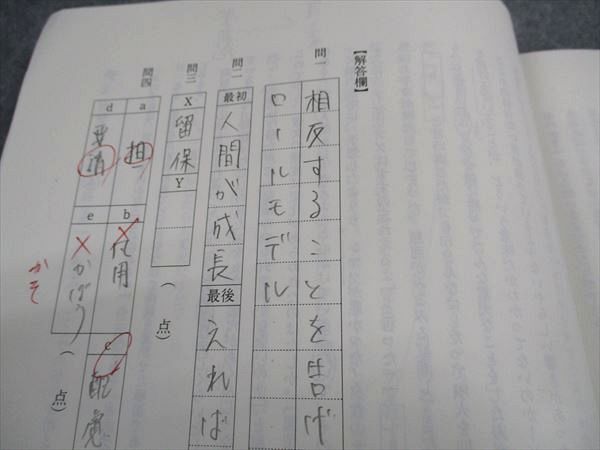 【解答欄】
問一
相反することを告げ
ロールモデル
問二
最初
人間が成長
最後
えれば
問三
X
留保
Y
(点)
問四
a
担
b
用
c
配慮
d
要請
e
かぼう
かそ
(点)